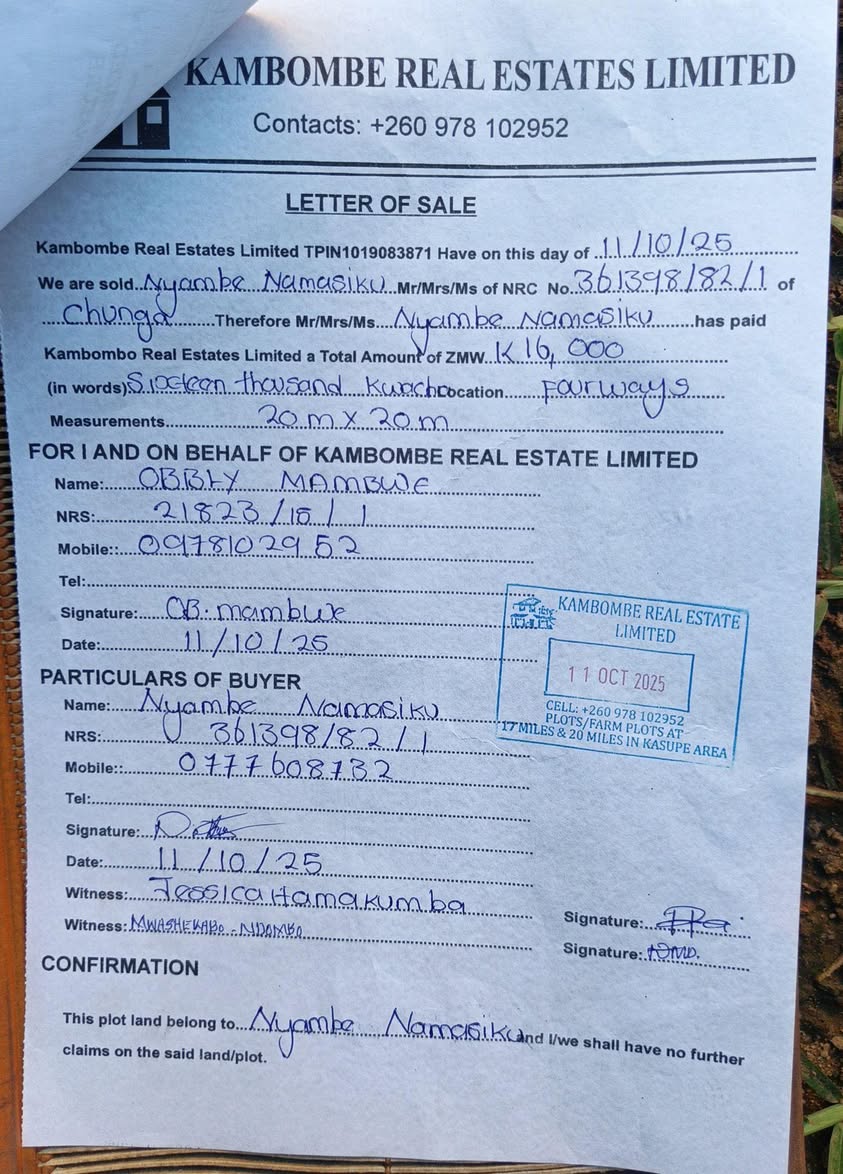 KAMBOMBE REAL ESTATES LIMITED
Contacts: +260 978 102952
LETTER OF SALE
Kambombe Real Estates Limited TPIN1019083871 Have on this day of ..11/10/25
We are sold..Nyambe Namasiku..Mr/Mrs/Ms of NRC No.361398/82/1 of
Chunga......Therefore Mr/Mrs/Ms...Nyambe Namasiku......has paid
Kambombo Real Estates Limited a Total Amount of ZMW..K16,000
(in words)Sixteen thousand Kwacha Location......Fourways
Measurements..........20m x 20m
FOR I AND ON BEHALF OF KAMBOMBE REAL ESTATE LIMITED
Name:......OBBLY MAMBWE
NRS:........21823/18/1
Mobile::...0978102952
Tel:
Signature:....OB.mambwe
Date:........11/10/25
PARTICULARS OF BUYER
Name:......Nyambe Namasiku
NRS:........361398/82/1
Mobile::......0777608732
Tel:
Signature:
Date:........11/10/25
Witness:...Jessica Hamakumba
Signature:
Witness:MWASHEKABO-NDAMBO
Signature:
KAMBOMBE REAL ESTATE
LIMITED
11 OCT 2025
CELL: +260 978 102952
PLOTS/FARM PLOTS AT
17 MILES & 20 MILES IN KASUPE AREA
CONFIRMATION
This plot land belong to...Nyambe Namasiku and I/we shall have no further
claims on the said land/plot.